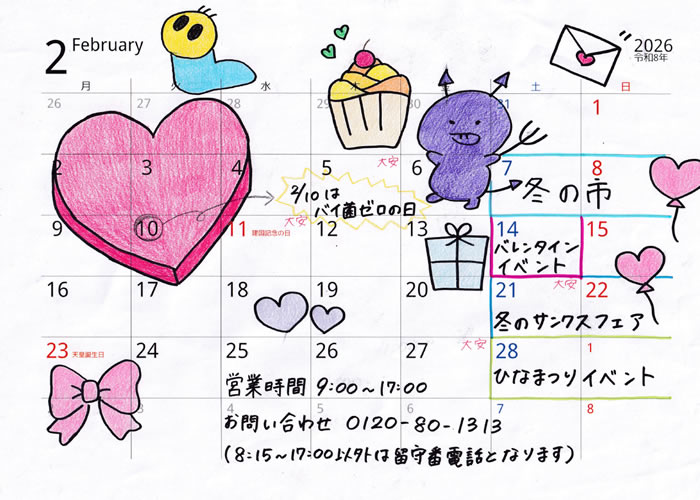 2 February
2026
令和8年
月 火 水 木 土 日
26 27 28 29 31 1
2 3 4 5 大安 6 7 8
2/10は
バイ菌ゼロの日
冬の市
9 10 11 建国記念の日 大安 12 13 14 15
バレンタイン
イベント
16 17 18 19 20 21 大安 22
冬のサンクスフェア
23 天皇誕生日 24 25 26 27 大安 28 1
ひなまつりイベント
営業時間 9:00〜17:00
2 3 4 5 6 7 8
お問い合わせ 0120-80-1313
(8:15〜17:00以外は留守番電話となります)